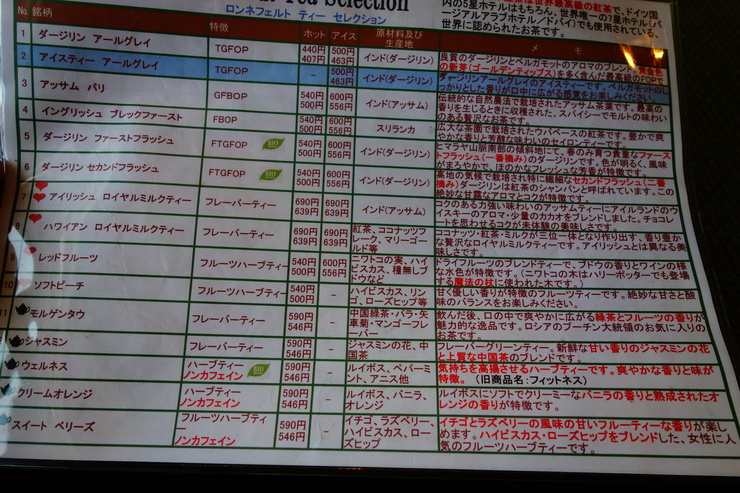 Tea Selection
ロンネフェルト ティー セレクション
世界最高級の紅茶で、ドイツ国
内の5星ホテルはもちろん、世界唯一の7星ホテル(バ
ージアルアラブホテル/ドバイ)でも使用されている、
世界に認められたお茶です。
No. 銘柄 特徴 ホット アイス 原材料及び
生産地 メ モ
1 ダージリン アールグレイ TGFOP 440円
407円 500円
463円 インド(ダージリン)
良質のダージリンとベルガモットのアロマのブレンド。
の新芽(ゴールデンティップス)を多く含んだ最高級のFOPで
2 アイスティー アールグレイ TGFOP - 500円
463円 インド(ダージリン)
ダージリンアールグレイのアイスティー。ベルガモットのし
っかりとした香りが口中に広がる感覚をお楽しみください。
3 アッサム バリ GFBOP 540円
500円 600円
556円 インド(アッサム)
伝統的な自然農法で栽培されたアッサム茶葉です。最高の
香りを生じるときに収穫された、スパイシーでモルトの味わい
のある贅沢なお茶です。
4 イングリッシュ ブレックファースト FBOP 540円
500円 600円
556円 スリランカ
広大な茶園で栽培されたウバペースの紅茶です。豊かで爽
やかな香りと芳醇な味わいのセイロンティーです。
5 ダージリン ファーストフラッシュ FTGFOP BIO 540円
500円 600円
556円 インド(ダージリン)
ヒマラヤ山脈南部の傾斜地にて、春のみ育つ貴重なファース
トフラッシュ(一番摘み)のダージリンです。色が明るく、風味
がまろやかで、ほのかなフレッシュな芳香が特徴です。
6 ダージリン セカンドフラッシュ FTGFOP BIO 540円
500円 600円
556円 インド(ダージリン)
高地の気候で栽培され特に繊細なセカンドフラッシュ(二番
摘み)ダージリンは紅茶のシャンパンと呼ばれています。この
絶妙な甘露なアロマとコクが特徴です。
7 アイリッシュ ロイヤルミルクティー フレーバーティー 690円
639円 690円
639円 インド(アッサム)
コクのある力強い味わいのアッサムティーにアイルランドのウ
イスキーのアロマ・少量のカカオをブレンドしました。チョコレ
ートを思わせるコクが未体験の美味しさです。
8 ハワイアン ロイヤルミルクティー フレーバーティー 690円
639円 690円
639円 紅茶、ココナッツフ
レーク、マリーゴー
ルド等
ココナッツ・紅茶・ミルクが三位一体となり作り出す、香り豊か
な贅沢なロイヤルミルクティーです。アイリッシュとは異なる美
味しさです。
9 レッドフルーツ フルーツハーブティ 540円
500円 600円
556円 ニワトコの実、ハイ
ビスカス、種無しブ
ドウなど
ドライフルーツのブレンドティーで、ブドウの香りとワインの様
な水色が特徴です。(ニワトコの木はハリーポッターでも登場
する魔法の杖に使われた木です。)
10 ソフトピーチ フルーツハーブティ 540円
500円 - ハイビスカス、リン
ゴ、ローズヒップ等
甘く優しい香りが特徴のフルーツティーです。絶妙な甘さと酸
味のバランスをお楽しみください。
11 モルゲンタウ フレーバーティー 590円
546円 - 中国緑茶・バラ・矢
車菊・マンゴーフレー
バー
飲んだ後、口の中で爽やかに広がる緑茶とフルーツの香りが
魅力的な逸品です。ロシアのプーチン大統領のお気に入りの
お茶です。
ジャスミン フレーバーティー 590円
546円 - ジャスミンの花、中
国茶
フレーバーグリーンティー。新鮮な甘い香りのジャスミンの花
と上質な中国茶のブレンドです。
ウェルネス ハーブティー
ノンカフェイン BIO 590円
546円 - ルイボス、ペパーミ
ント、アニス他
気持ちを高揚させるハーブティーです。爽やかな香りと味が
特徴。(旧商品名:フィットネス)
クリームオレンジ ハーブティー
ノンカフェイン 590円
546円 - ルイボス、バニラ、
オレンジ
ルイボスにソフトでクリーミーなバニラの香りと熟成されたオ
レンジの香りが特徴です。
スイート ベリーズ フルーツハーブティ
ー
ノンカフェイン 590円
546円 - イチゴ、ラズベリー、
ハイビスカス、ロー
ズヒップ
イチゴとラズベリーの風味の甘いフルーティーな香りが楽し
めます。ハイビスカス・ローズヒップをブレンドした、女性に人
気のフルーツハーブティーです。